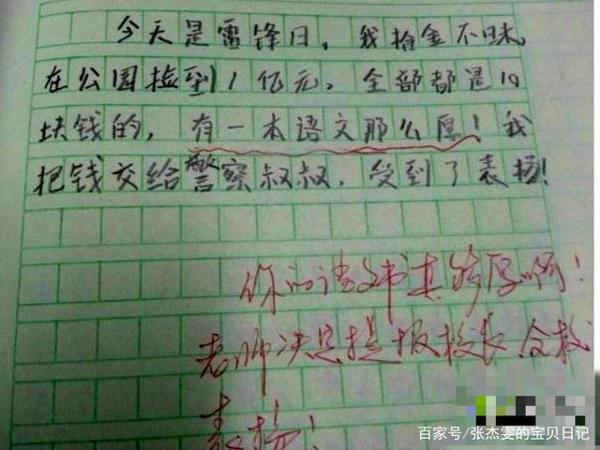 今天是雷锋日，我拾金不昧，
在公园捡到1亿元，全部都是10
块钱的，有一本语文那么厚！我
把钱交给警察叔叔，受到了表扬！
你的语文书真够厚啊！
老师决定提报校长全校
表扬！
百家号/张杰雯的宝贝日记